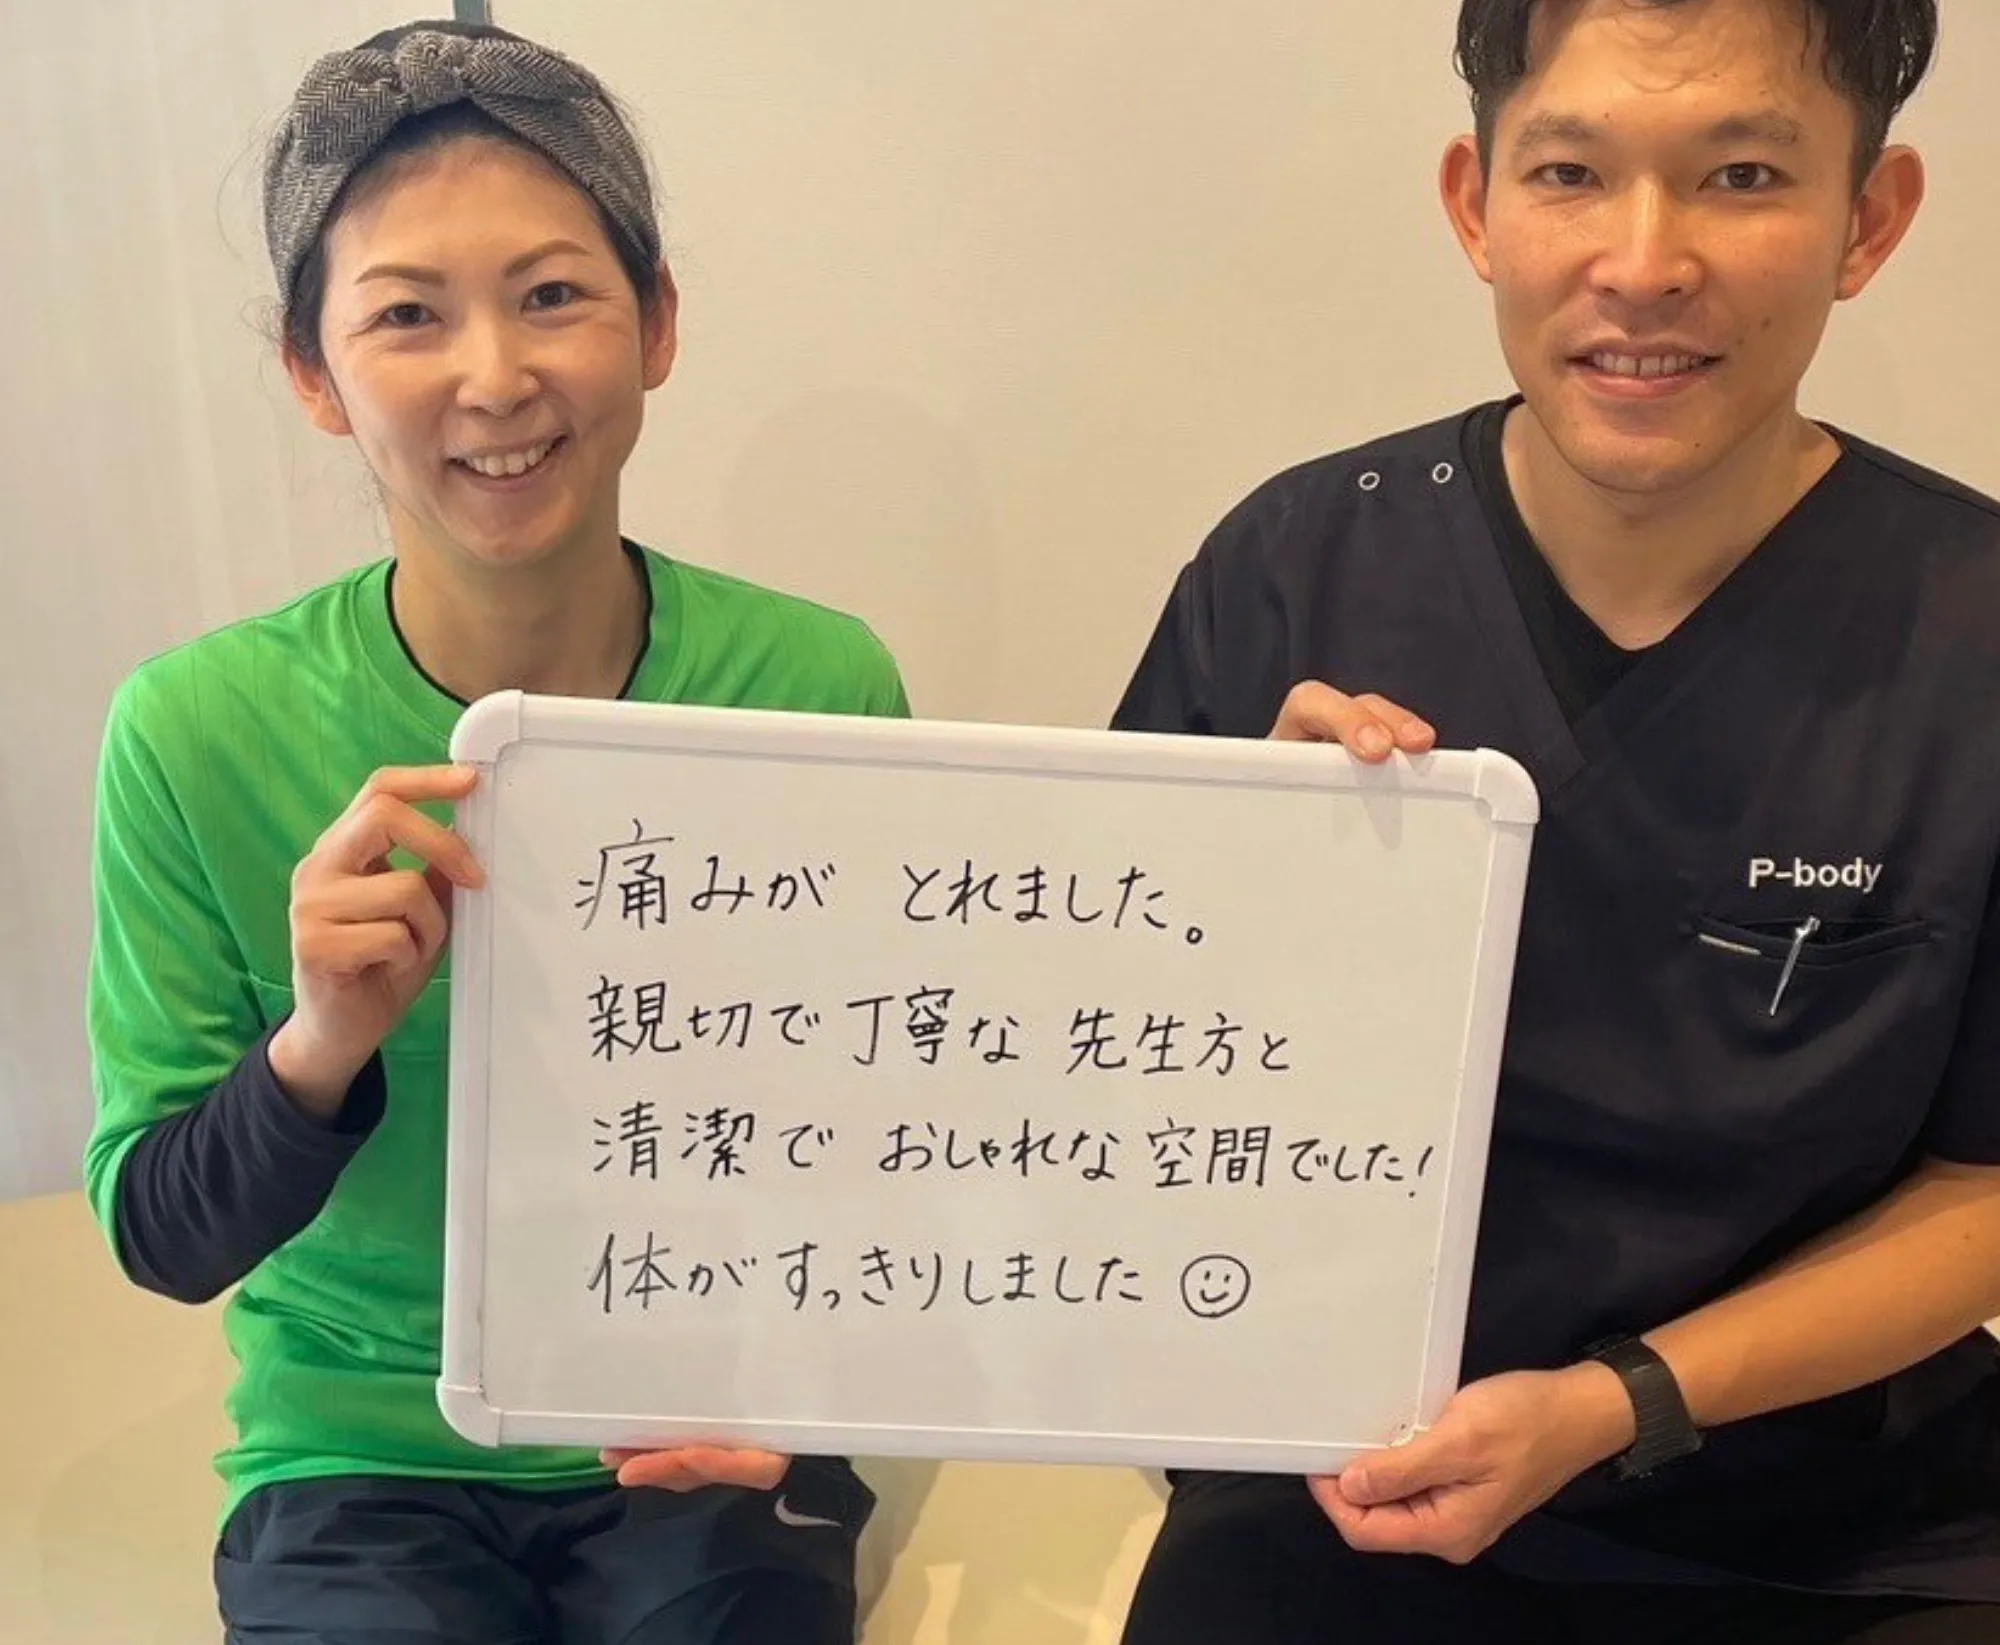 痛みが とれました。
親切で丁寧な 先生方と
清潔で おしゃれな空間でした!
体がすっきりしました☺
P-body